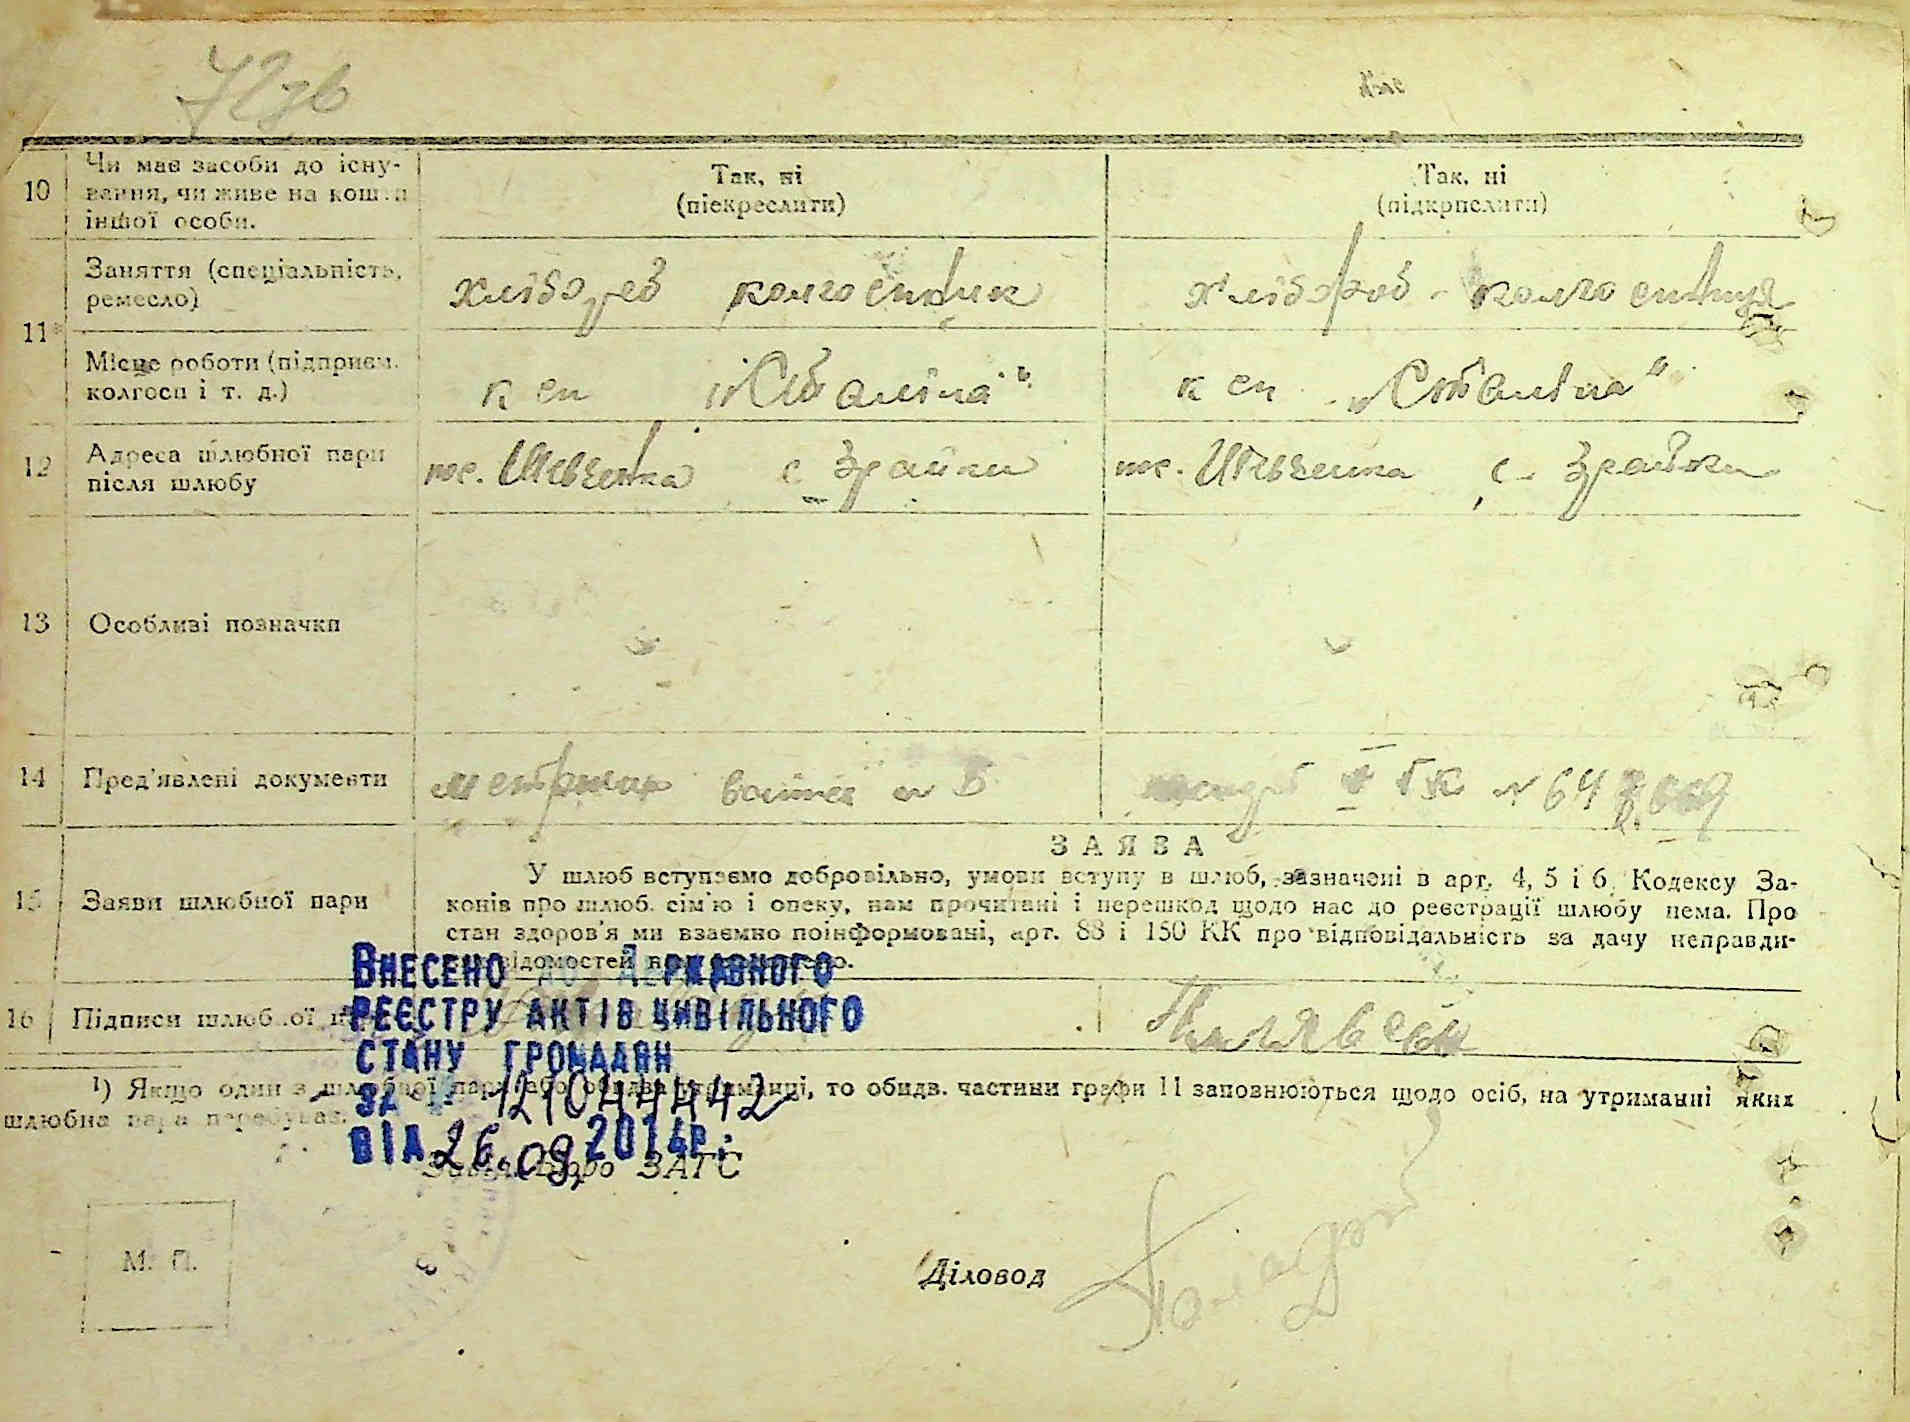 72зв
10 Чи має засоби до існу-
вання, чи живе на кошти
іншої особи.
Так, ні
(піекреслити)
Так, ні
(підкреслити)
11
Заняття (спеціальність,
ремесло)
хлібороб колгоспник
хлібороб - колгоспниця
Місце роботи (підприєм.
колгосп і т. д.)
к сп „Сталіна"
к сп „Сталіна"
12 Адреса шлюбної пари
після шлюбу
тс. Шевченка с Зрайки
тс. Шевченка с. Зрайки
13 Особливі позначки
14 Пред'явлені документи
ГК № 64
15 Заяви шлюбної пари
ЗАЯВА
У шлюб вступаємо добровільно, умови вступу в шлюб, зазначені в арт. 4, 5 і 6 Кодексу За-
конів про шлюб. сім'ю і опеку, нам прочитані і перешкод щодо нас до реєстрації шлюбу нема. Про
стан здоров'я ми взаємно поінформовані, арт. 88 і 150 КК про відповідальність за дачу неправди-
відомостей
16 Підписи шлюбної
Внесено до Державного
реєстру актів цивільного
стану громадян
за № 1210444442
від 26.09.2014р.
¹) Якщо один з шлюбної пари або обидва утриманці, то обидв. частини графи 11 заповнюються щодо осіб, на утриманні яких
шлюбна пара перебуває.
Бюро ЗАГС
М. П.
Діловод